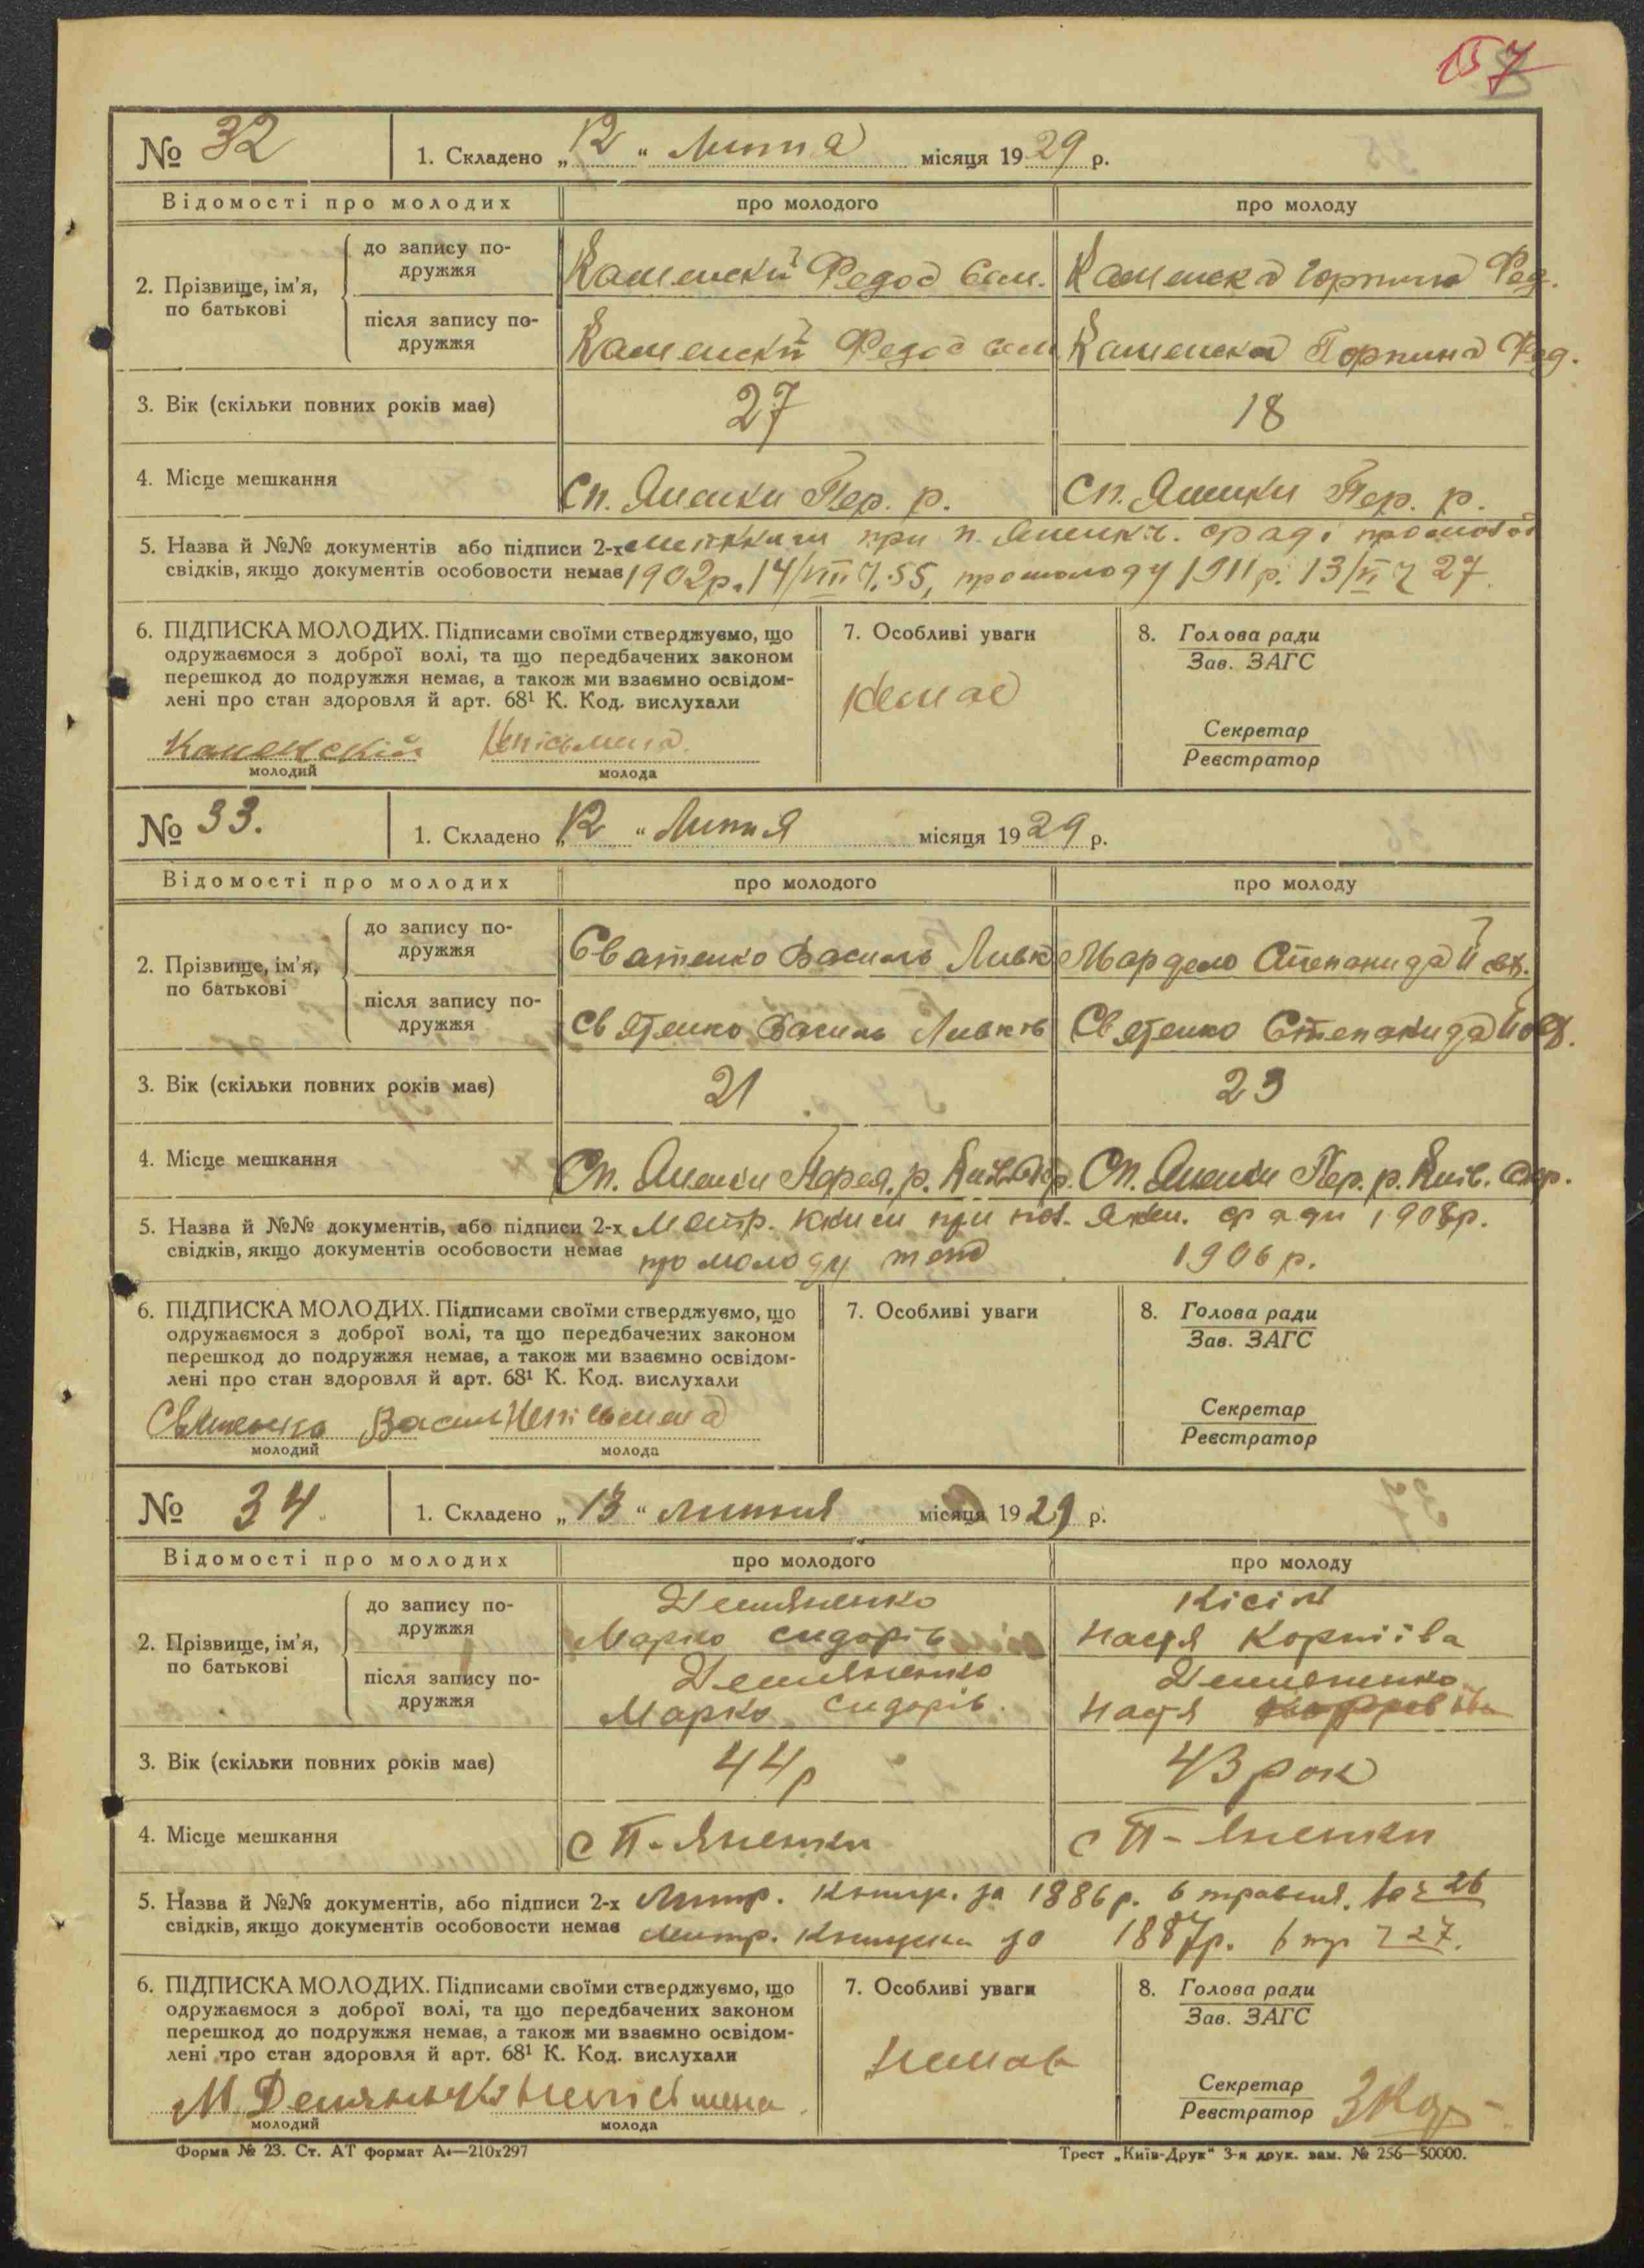 157
№ 32
1. Складено „12“ Липня місяця 1929 р.
Відомості про молодих
про молодого
про молоду
2. Прізвище, ім’я, по батькові
до запису подружжя
Каменский Федос Сем.
Каменска Горпина Фед.
після запису подружжя
Каменский Федос Сем
Каменска Горпина Фед.
3. Вік (скільки повних років має)
27
18
4. Місце мешкання
Сп. Яненки Пер. р.
Сп. Яненки Пер. р.
5. Назва й №№ документів або підписи 2-х
при п. сраді
свідків, якщо документів особовости немає 1902р. 14/VIII Ч. 55, про молоду 1911р. 13/VI Ч 27.
6. ПІДПИСКА МОЛОДИХ. Підписами своїми стверджуємо, що
одружаємося з доброї волі, та що передбачених законом
перешкод до подружжя немає, а також ми взаємно освідом-
лені про стан здоровля й арт. 68¹ К. Код. вислухали
Каменский Неписьмена
молодий
молода
7. Особливі уваги
Немає
8. Голова ради
Зав. ЗАГС
Секретар
Реєстратор
№ 33.
1. Складено „12“ Липня місяця 1929 р.
Відомості про молодих
про молодого
про молоду
2. Прізвище, ім’я, по батькові
до запису подружжя
Святенко Василь
Степанида
після запису подружжя
Святенко Василь
Святенко Степанида
3. Вік (скільки повних років має)
21
23
4. Місце мешкання
Сп. Яненки Перея. р. Київ. Окр.
Сп. Яненки Пер. р. Київ. Окр.
5. Назва й №№ документів, або підписи 2-х Метр. книги при пов. Янен. с ради 1908р.
свідків, якщо документів особовости немає про молоду теж 1906 р.
6. ПІДПИСКА МОЛОДИХ. Підписами своїми стверджуємо, що
одружаємося з доброї волі, та що передбачених законом
перешкод до подружжя немає, а також ми взаємно освідом-
лені про стан здоровля й арт. 68¹ К. Код. вислухали
Святенко Васил Неписьмена
молодий
молода
7. Особливі уваги
8. Голова ради
Зав. ЗАГС
Секретар
Реєстратор
№ 34.
1. Складено „13“ липня місяця 1929 р.
Відомості про молодих
про молодого
про молоду
2. Прізвище, ім’я, по батькові
до запису подружжя
Демяненко
Марко сидорів
Кісіль
Настя Корніїва
після запису подружжя
Демяненко
Марко Сидорів.
Демяненко
Настя
3. Вік (скільки повних років має)
44 р
43 рок
4. Місце мешкання
с П-Яненки
с П-Яненки
5. Назва й №№ документів, або підписи 2-х Метр. Книж. за 1886 р. 6 травня. 26
свідків, якщо документів особовости немає метр. Книжки за 1887р. 27.
6. ПІДПИСКА МОЛОДИХ. Підписами своїми стверджуємо, що
одружаємося з доброї волі, та що передбачених законом
перешкод до подружжя немає, а також ми взаємно освідом-
лені про стан здоровля й арт. 68¹ К. Код. вислухали
М Демяненко неписьмена
молодий
молода
7. Особливі уваги
Немає
8. Голова ради
Зав. ЗАГС
Секретар
Реєстратор
Форма № 23. Ст. АТ формат А4—210х297
Трест „Київ-Друк“ 3-я друк. зам. № 256—50000.